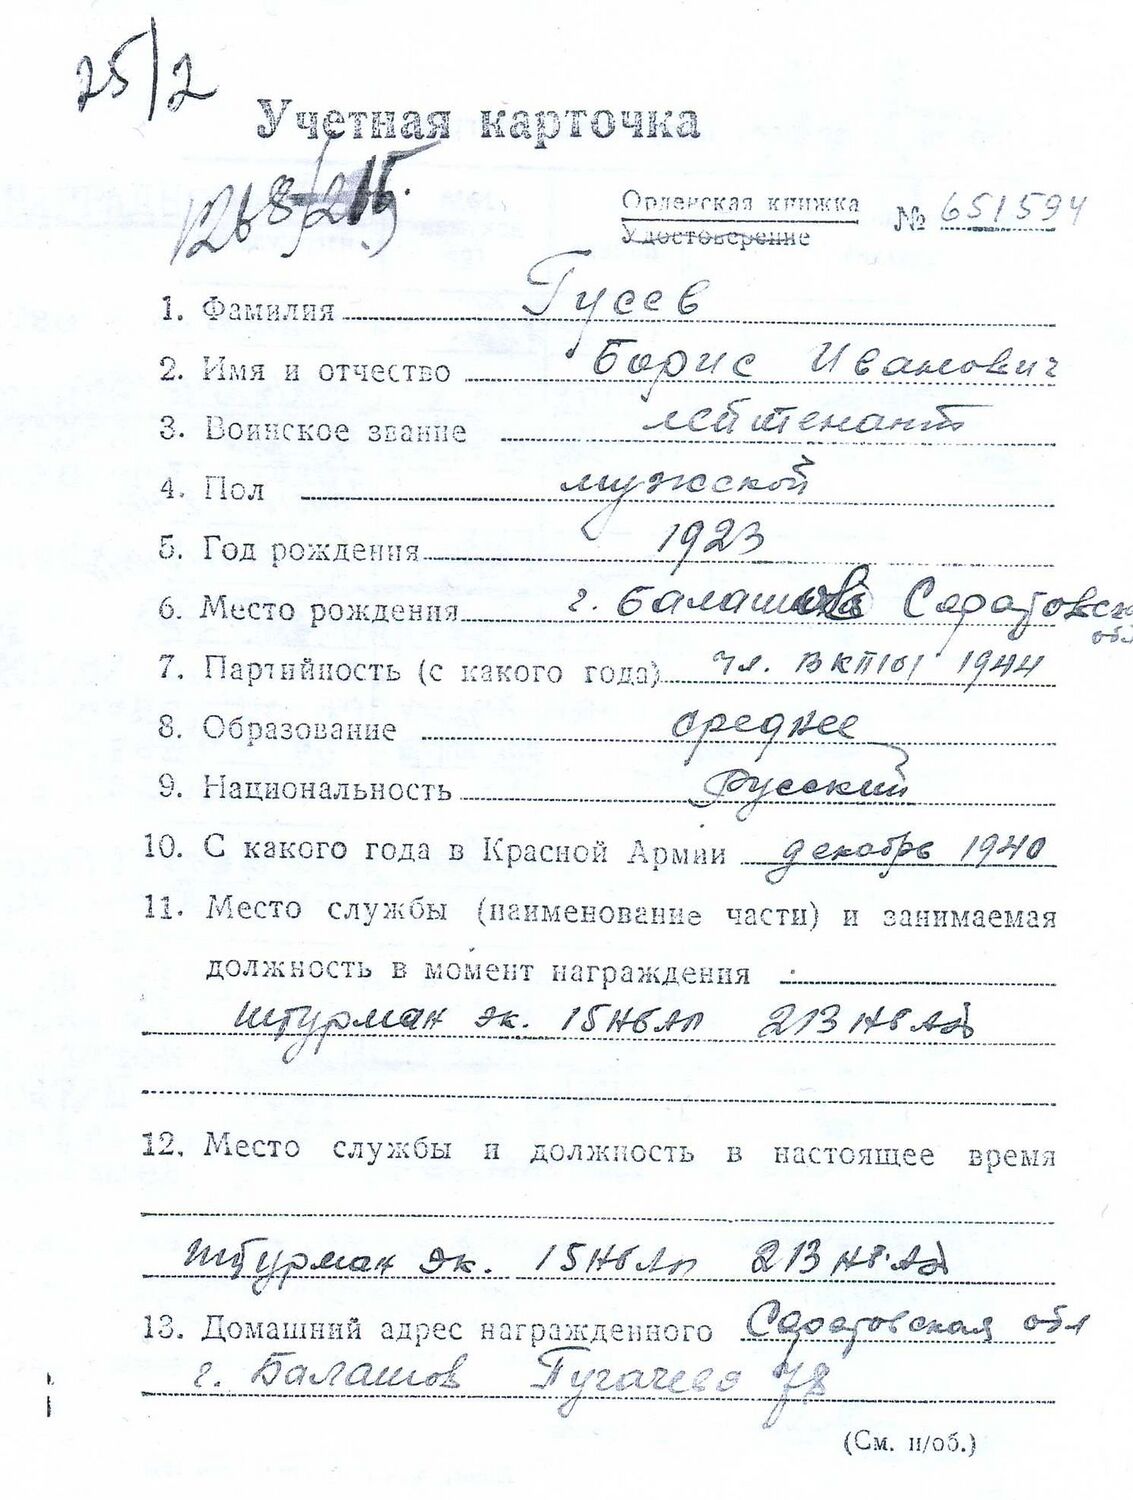 25/2
Учетная карточка
Орденская книжка
Удостоверение
№ 651594
1. Фамилия Гусев
2. Имя и отчество Борис Иванович
3. Воинское звание лейтенант
4. Пол мужской
5. Год рождения 1923
6. Место рождения г. Балашов Саратовск
обл
7. Партийность (с какого года) чл. ВКП(б) 1944
8. Образование среднее
9. Национальность Русский
10. С какого года в Красной Армии декабрь 1940
11. Место службы (наименование части) и занимаемая
должность в момент награждения
штурман эк. 15 нбап 213 нбад
12. Место службы и должность в настоящее время
штурман эк. 15 нбап 213 нбад
13. Домашний адрес награжденного Саратовская обл
г. Балашов Пугачева 78
(См. н/об.)